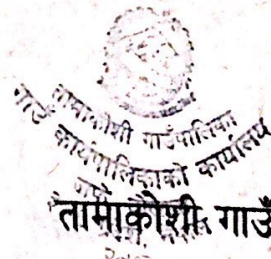 तामाकोशी गाउँपालिका
गाउँ कार्यपालिकाको कार्यालय
तामाकोशी गाउँ